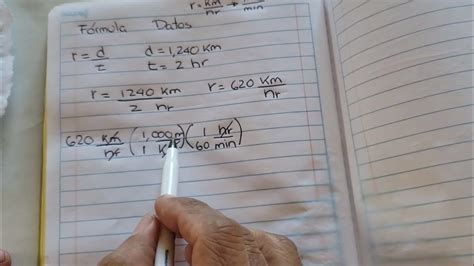 r = km/hr + 1/min
Fórmula Datos
r = d/t d = 1,240 km
t = 2 hr
r = 1240 km / 2 hr r = 620 km/hr
620 km/hr (1,000 m / 1 km) (1 hr / 60 min)